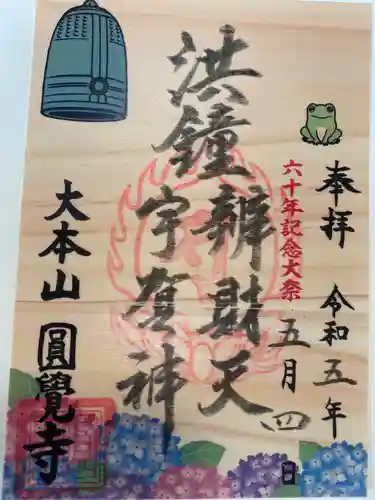 奉拝 令和五年
五月四日
六十年記念大祭
洪鐘辨財天
宇賀神
大本山圓覺寺